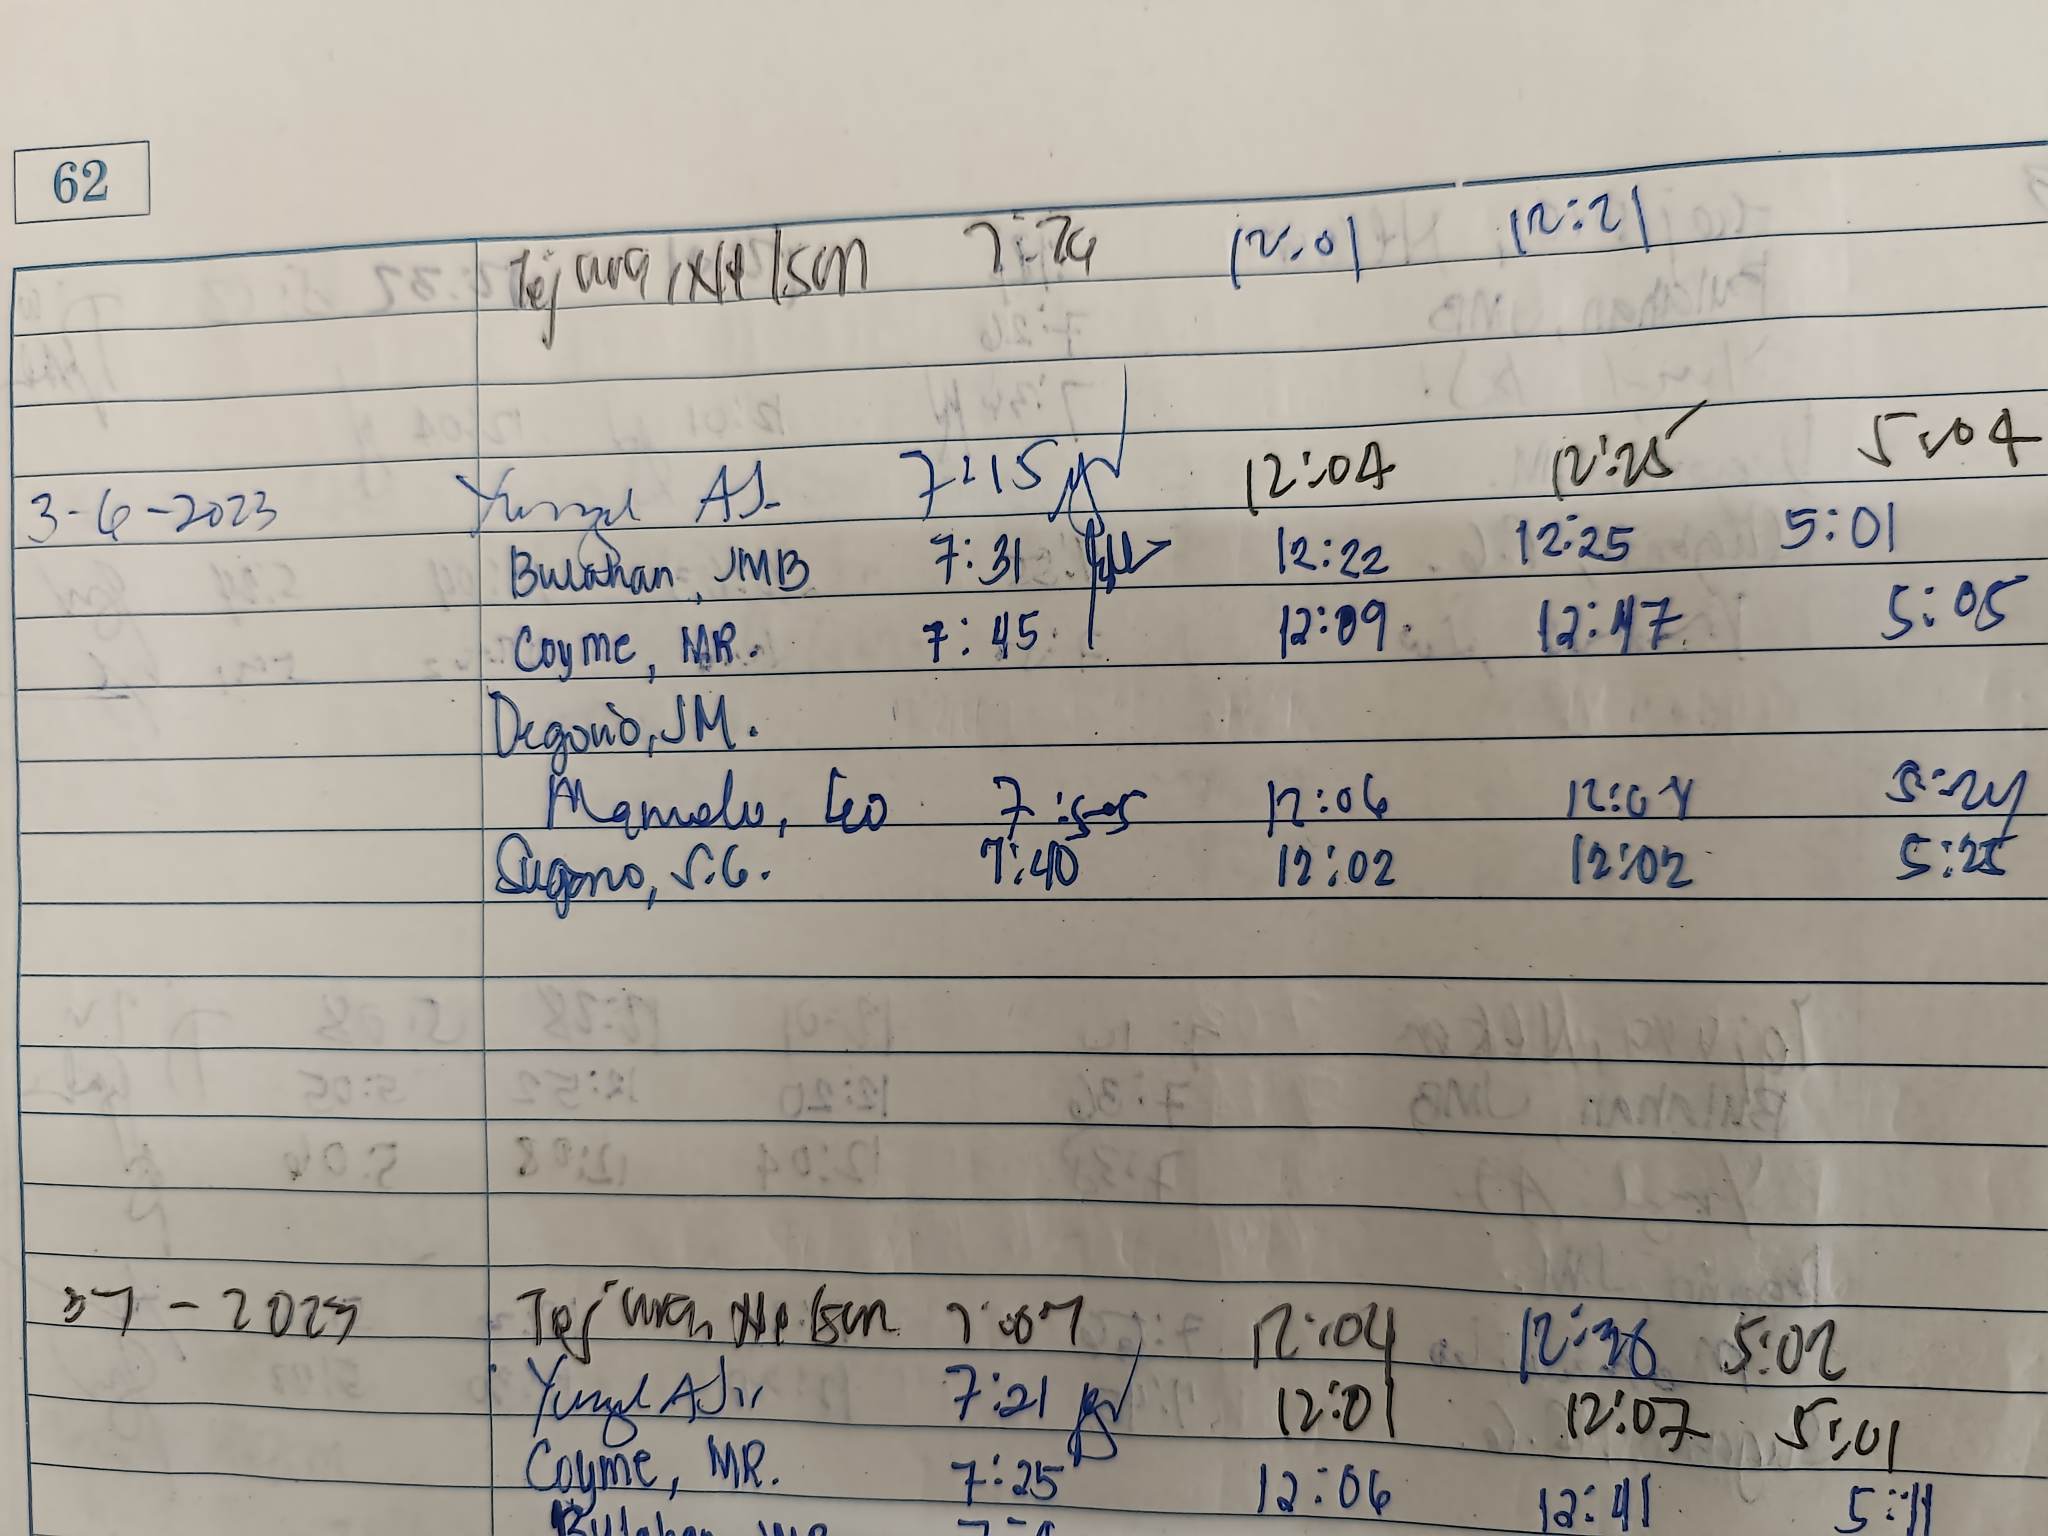 62
Tejura, Nelson 7:24 12:01 12:21
3-6-2023 AJ 7:15 12:04 12:25 5:04
Bulahan, JMB 7:31 12:22 12:25 5:01
Coyme, MR. 7:45 12:09 12:47 5:05
Degorio, JM.
Leo 7:55 12:06 12:07 5:24
Sugano, S.G. 7:40 12:02 12:02 5:25
37-2023 Nelson 7:07 12:04 12:36 5:02
AJ 7:21 12:01 12:07 5:01
Coyme, MR. 7:25 12:06 12:41 5:11
Bulahan